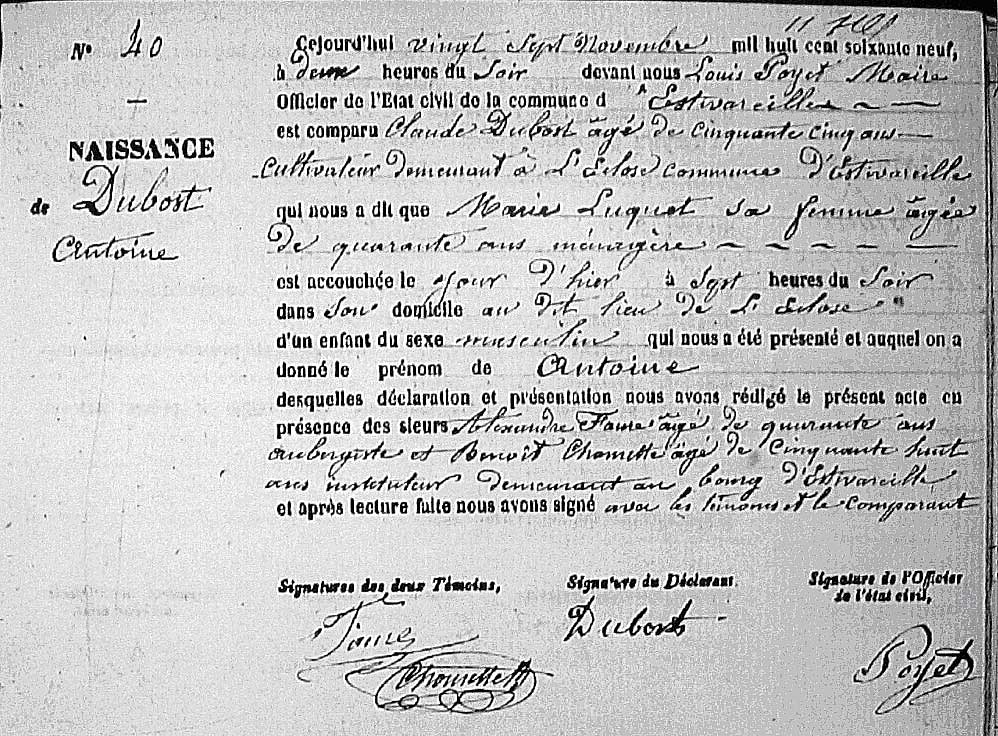 Nº 40
NAISSANCE
de Dubost
Antoine
Cejourd'hui vingt sept Novembre mil huit cent soixante neuf,
à deux heures du Soir devant nous Louis Poyet Maire
Officier de l'Etat civil de la commune d'Estivareilles
est comparu Claude Dubost âgé de cinquante cinq ans
cultivateur demeurant à L'Eclose commune d'Estivareille
qui nous a dit que Marie Luquet sa femme âgée
de quarante ans ménagère
est accouchée le jour d'hier à Sept heures du Soir
dans Son domicile au dit lieu de L'Eclose
d'un enfant du sexe masculin qui nous a été présenté et auquel on a
donné le prénom de Antoine
desquelles déclaration et présentation nous avons rédigé le présent acte en
présence des sieurs Alexandre Faure âgé de quarante ans
aubergiste et Benoit Chomette âgé de Cinquante huit
ans instituteur demeurant au bourg d'Estivareille
et après lecture faite nous avons signé avec les témoins et le comparant
Signatures des deux Témoins,
Signature du Déclarant.
Signature de l'Officier
de l'état civil,
Faure
Dubost
Chomette
Poyet